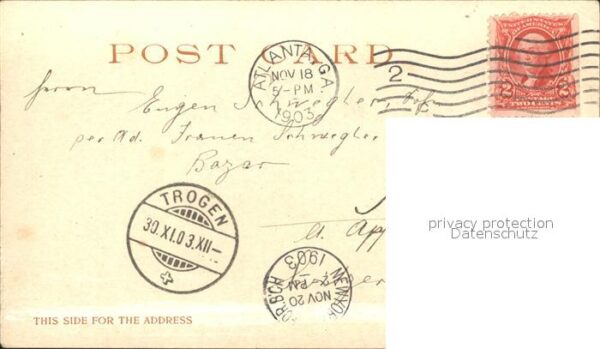 POST CARD
ATLANTA, GA.
NOV 18
5-PM
1903
2
UNITED STATES
OF AMERICA
2 2
POSTAGE
TWO CENTS
Herrn Eugen Schwegler,
per Ad. Frauen Schwegler
Bazar
privacy protection
Datenschutz
TROGEN
30.XI.03.XII-
a. App
NEW YORK
NOV 20
PM
1903
THIS SIDE FOR THE ADDRESS